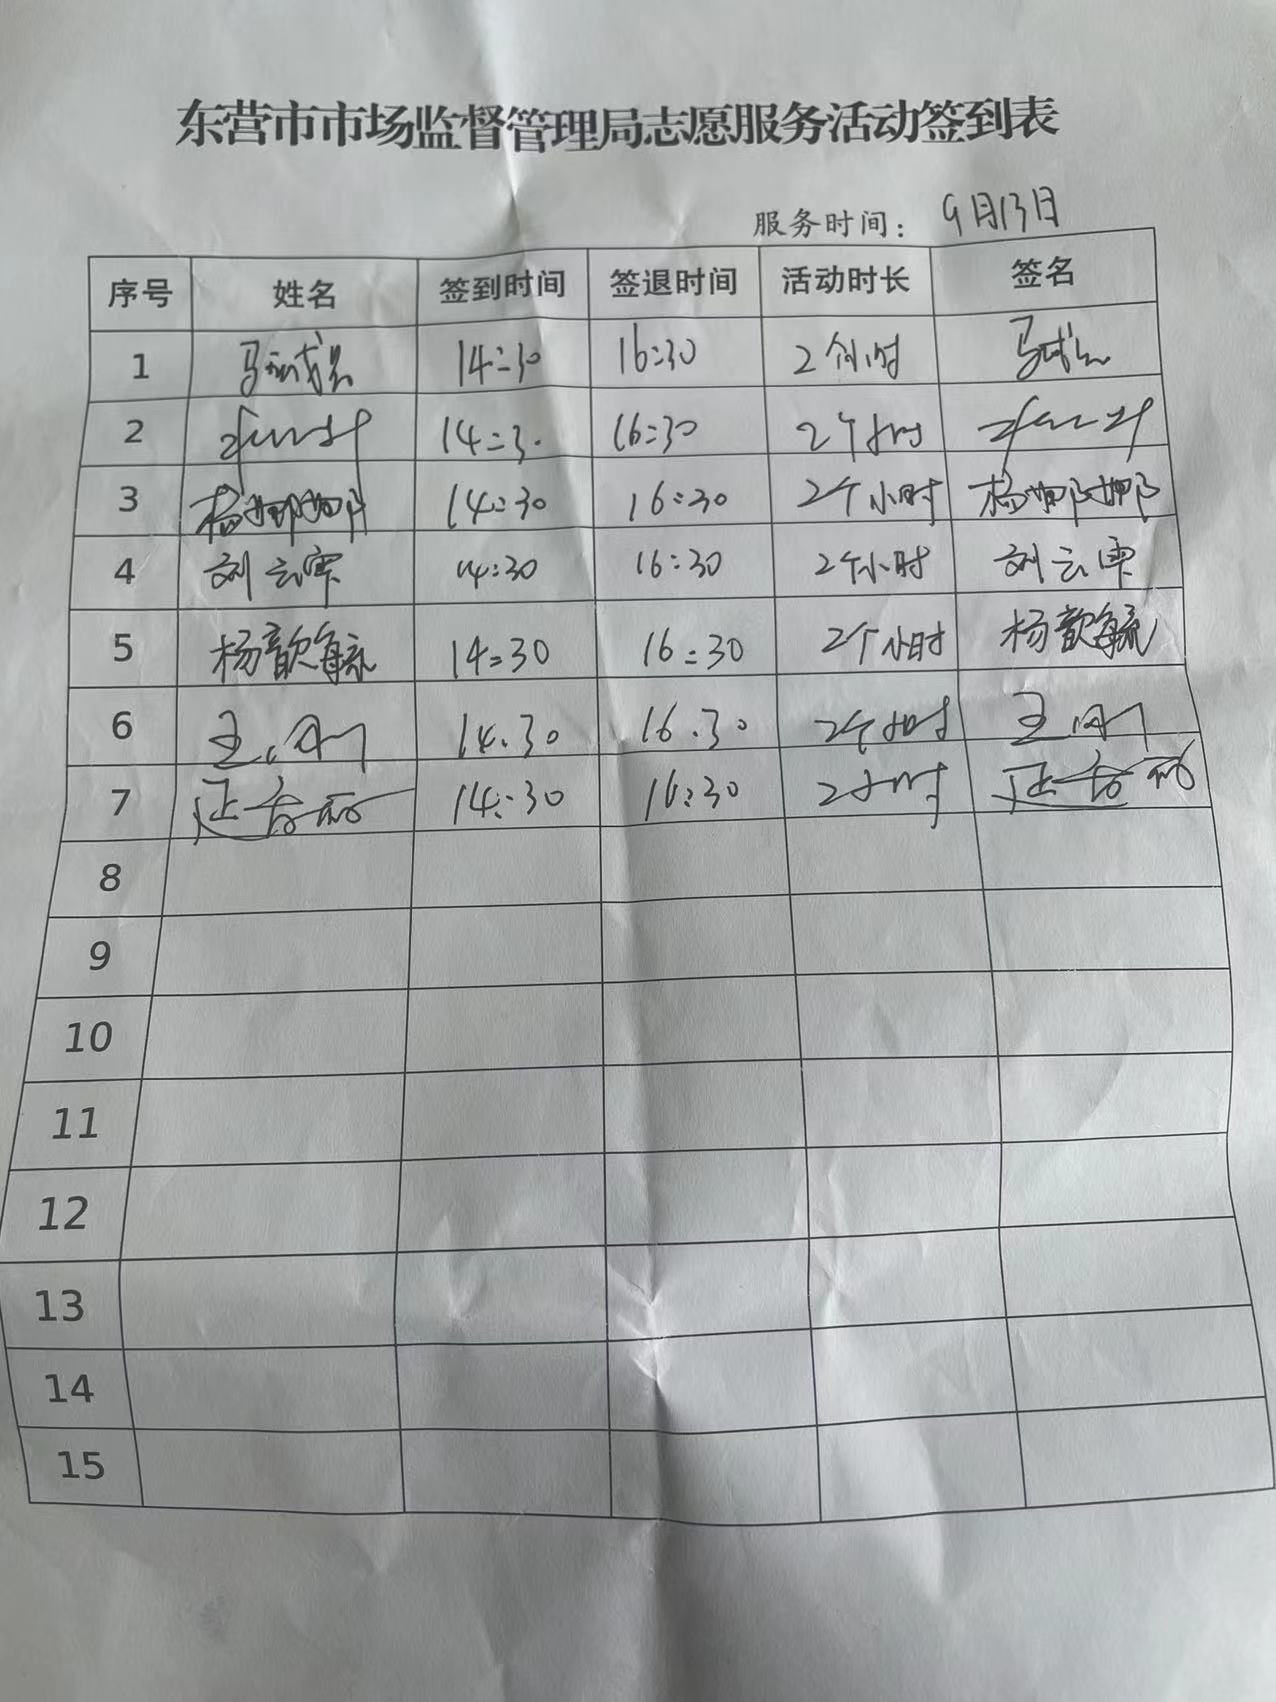 东营市市场监督管理局志愿服务活动签到表
服务时间: 9月13日
序号 姓名 签到时间 签退时间 活动时长 签名
1 14:30 16:30 2个小时
2 14:30 16:30 2个小时
3 杨娜娜 14:30 16:30 2个小时 杨娜娜
4 刘云霄 14:30 16:30 2个小时 刘云霄
5 杨歆毓 14:30 16:30 2个小时 杨歆毓
6 14.30 16.30 2个小时
7 14:30 16:30 2小时
8
9
10
11
12
13
14
15